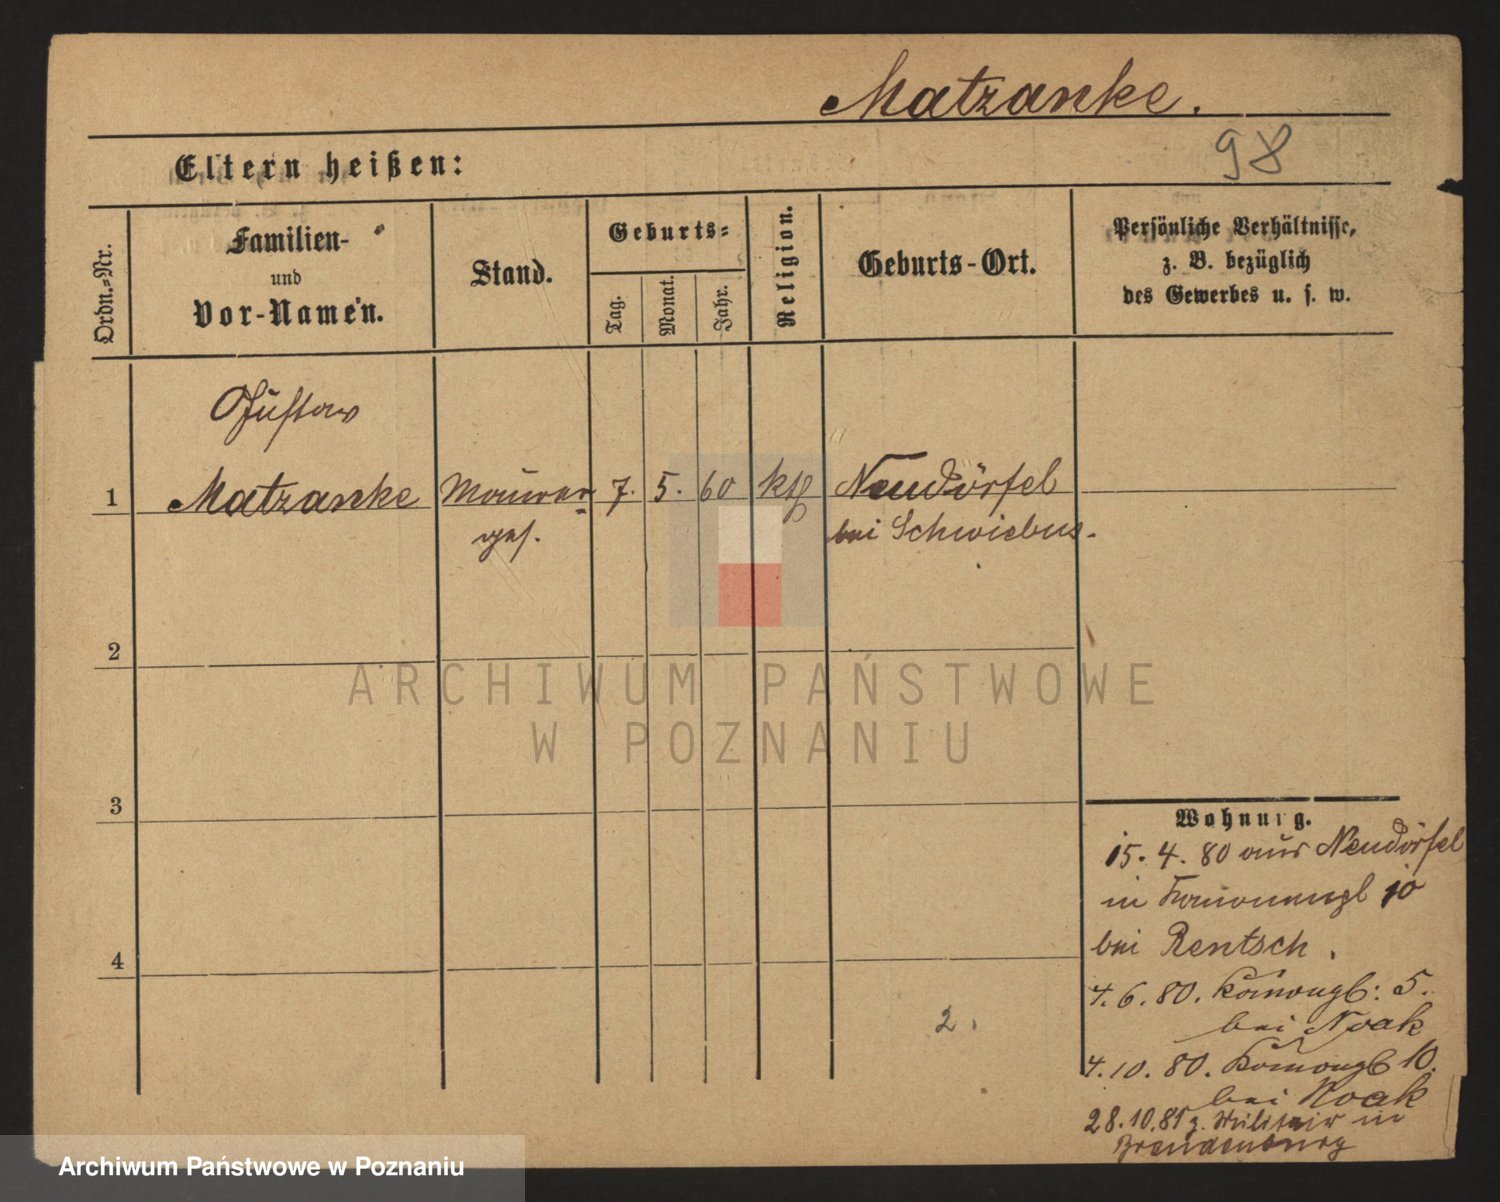 Matzanke.
98
Eltern heißen:
Ordn.-Nr.
Familien-
und
Vor-Namen.
Stand.
Geburts-
Tag.
Monat.
Jahr.
Religion.
Geburts-Ort.
Persönliche Verhältnisse,
z. B. bezüglich
des Gewerbes u. s. w.
Gustav
1 Matzanke Maurer- 7. 5. 60 kth Neudörfel
ges. bei Schwiebus.
2
3
4
Wohnung.
15. 4. 80 aus Neudörfel
in 10
bei Rentsch.
4. 6. 80. 5.
bei Noak
4. 10. 80. 10.
bei Noak
28. 10. 81 z. Militair in
Brandenburg
2.
ARCHIWUM PAŃSTWOWE
W POZNANIU
Archiwum Państwowe w Poznaniu